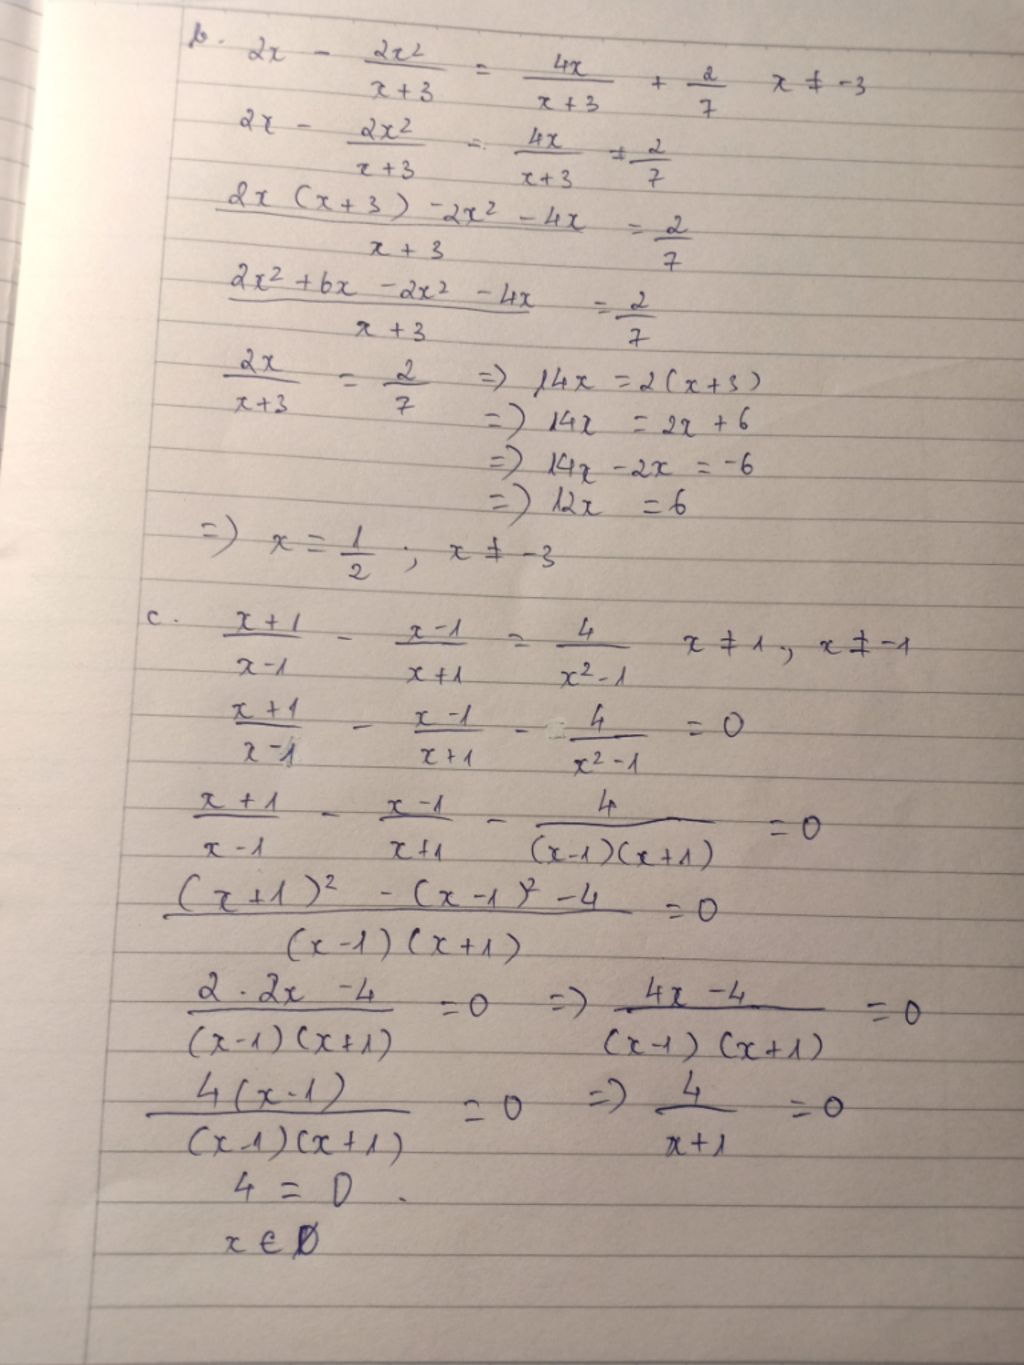 b. 2x - 2x²/(x+3) = 4x/(x+3) + 2/7 x ≠ -3
2x - 2x²/(x+3) = 4x/(x+3) + 2/7
(2x (x+3) - 2x² - 4x)/(x+3) = 2/7
(2x² + 6x - 2x² - 4x)/(x+3) = 2/7
2x/(x+3) = 2/7 => 14x = 2(x+3)
=> 14x = 2x + 6
=> 14x - 2x = -6
=> 12x = 6
=> x = 1/2 ; x ≠ -3
c. (x+1)/(x-1) - (x-1)/(x+1) = 4/(x²-1) x ≠ 1, x ≠ -1
(x+1)/(x-1) - (x-1)/(x+1) - 4/(x²-1) = 0
(x+1)/(x-1) - (x-1)/(x+1) - 4/((x-1)(x+1)) = 0
((x+1)² - (x-1)² - 4)/((x-1)(x+1)) = 0
(2 · 2x - 4)/((x-1)(x+1)) = 0 => (4x - 4)/((x-1)(x+1)) = 0
4(x-1)/((x-1)(x+1)) = 0 => 4/(x+1) = 0
4 = 0.
x ∈ Ø